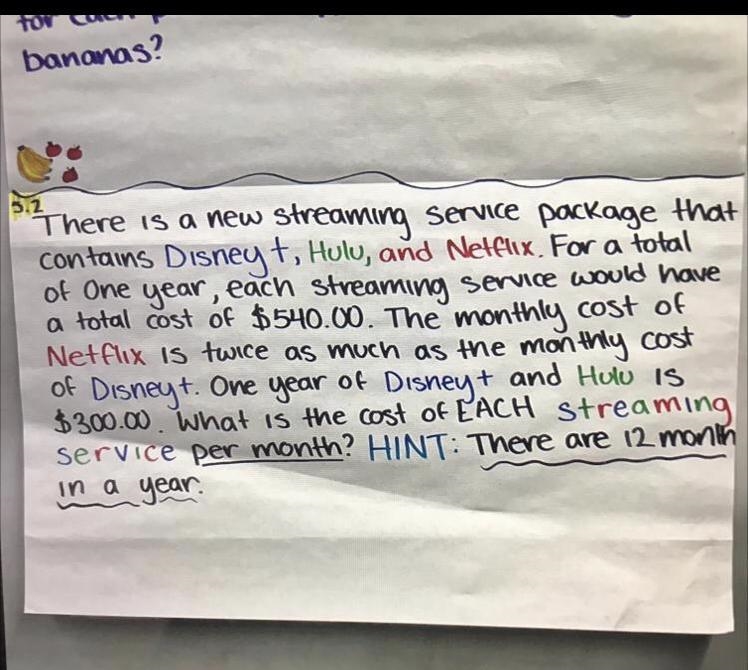 for
bananas?
3.2
There is a new streaming service package that
contains Disney+, Hulu, and Netflix. For a total
of one year, each streaming service would have
a total cost of $540.00. The monthly cost of
Netflix is twice as much as the monthly cost
of Disney+. One year of Disney+ and Hulu is
$300.00. What is the cost of EACH streaming
service per month? HINT: There are 12 month
in a year.